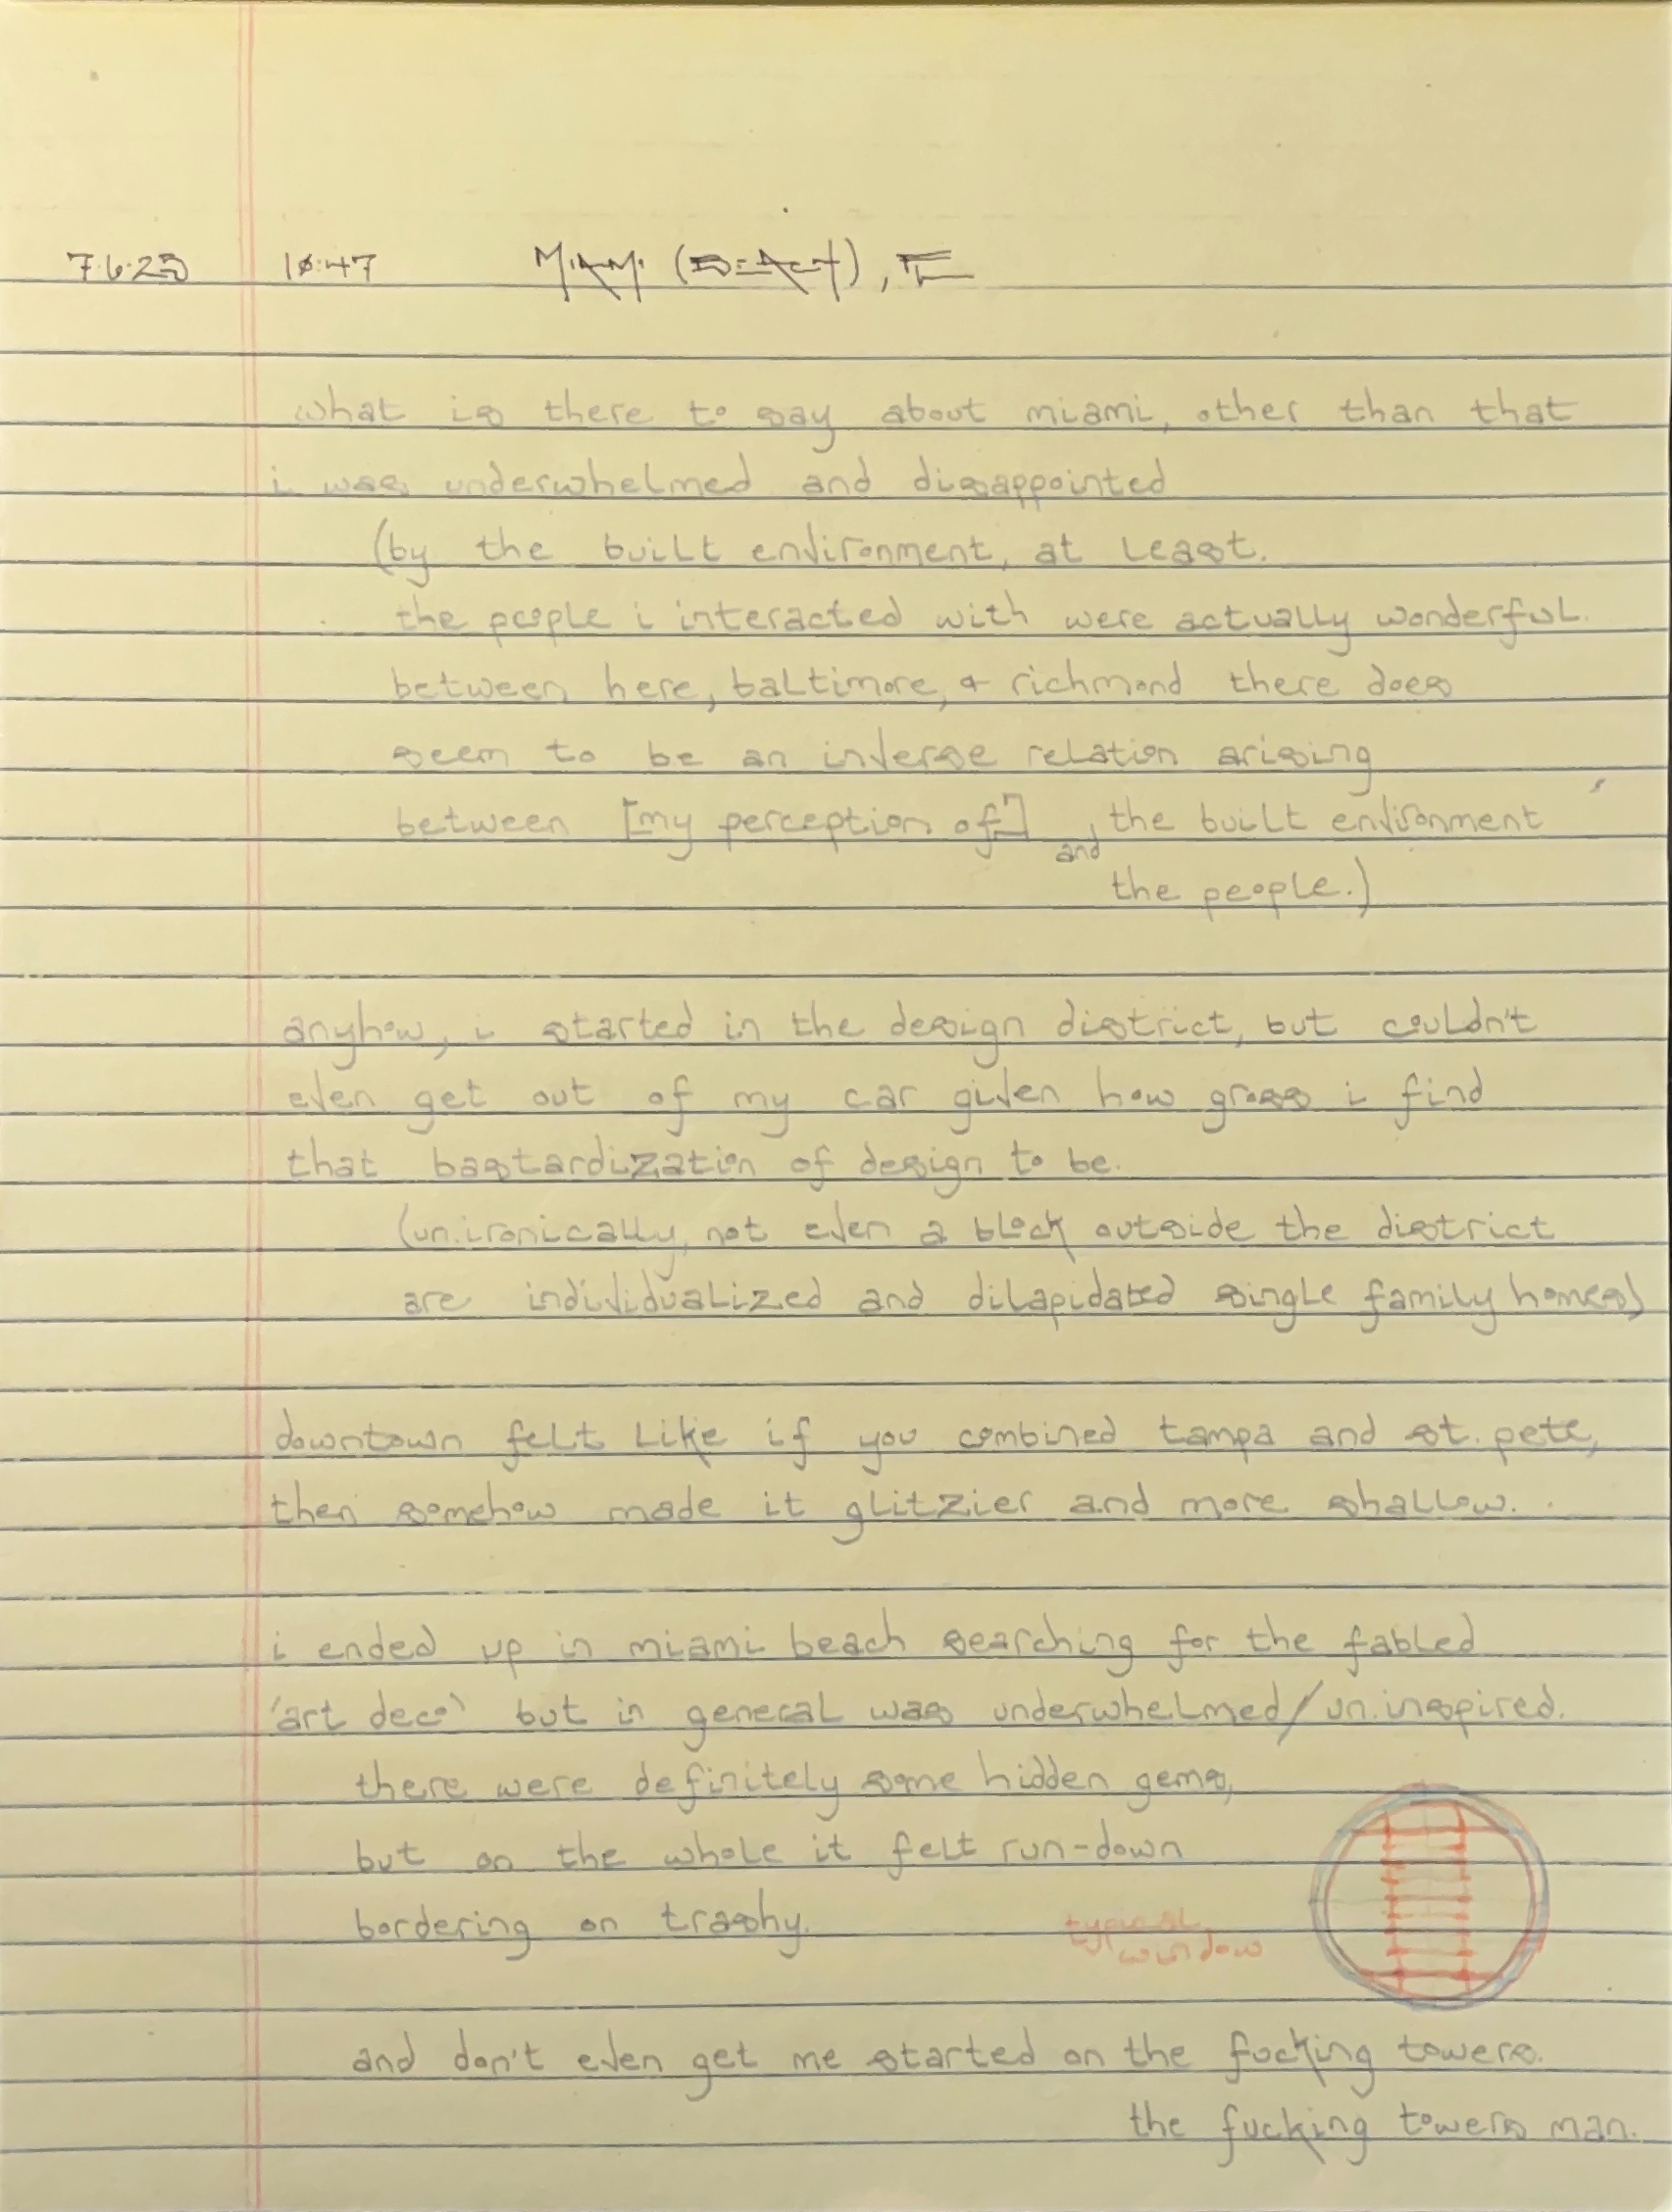 7.6.23 10:47 MIAMI (BEACH), FL
what is there to say about miami, other than that
i was underwhelmed and disappointed
(by the built environment, at least.
the people i interacted with were actually wonderful.
between here, baltimore, & richmond there does
seem to be an inverse relation arising
between [my perception of] the built environment
and
the people.)
anyhow, i started in the design district, but couldn't
even get out of my car given how gross i find
that bastardization of design to be.
(un.ironically, not even a block outside the district
are individualized and dilapidated single family homes)
downtown felt like if you combined tampa and st. pete,
then somehow made it glitzier and more shallow.
i ended up in miami beach searching for the fabled
'art deco' but in general was underwhelmed/un.inspired.
there were definitely some hidden gems,
but on the whole it felt run-down
bordering on trashy.
typical
window
and don't even get me started on the fucking towers.
the fucking towers man.